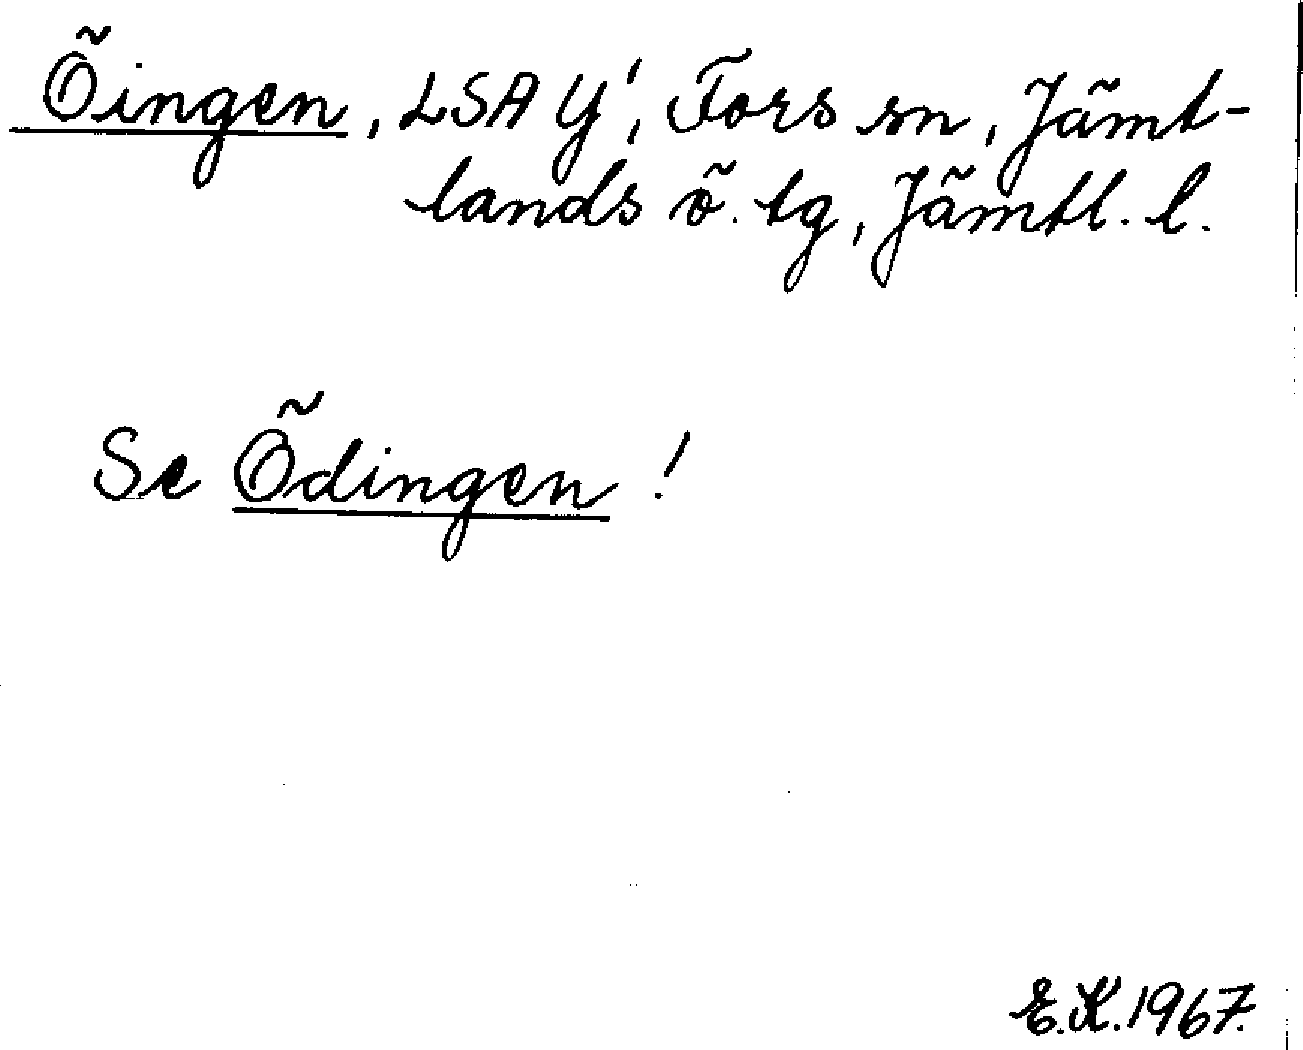 Öingen, LSA Y', Fors sn, Jämt-
lands ö. tg, Jämtl. l.
Se Ödingen !
E.K. 1967.